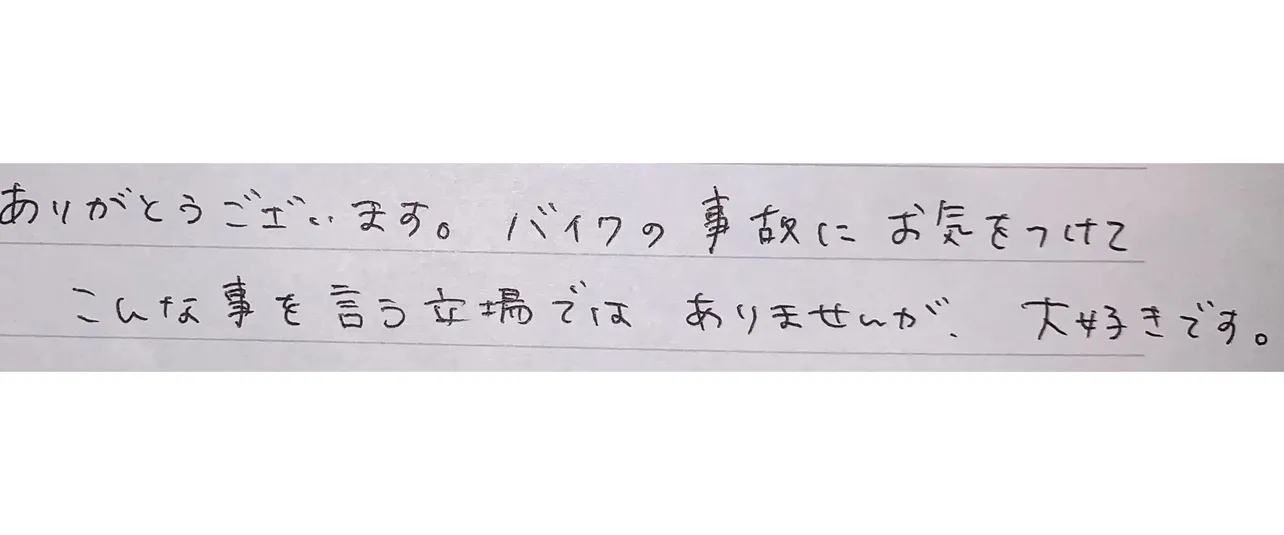 ありがとうございます。バイクの事故にお気をつけて
こんな事を言う立場ではありませんが、大好きです。